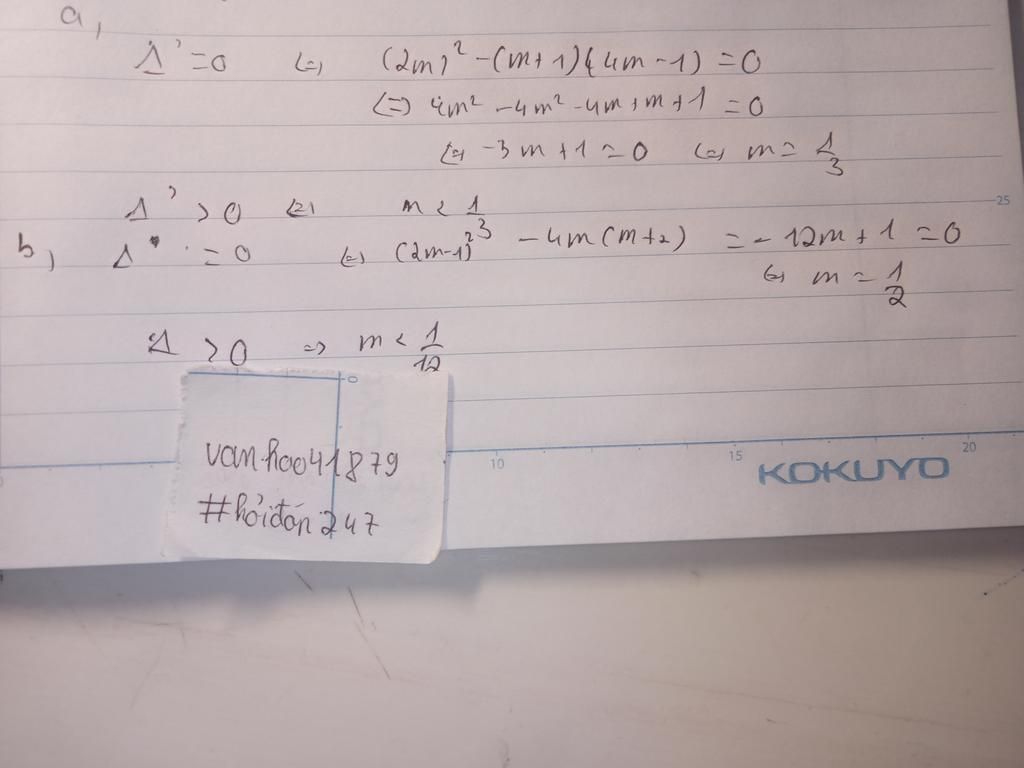 a,
Δ' = 0 (=) (2m)² - (m+1)(4m-1) = 0
(=) 4m² - 4m² - 4m + m + 1 = 0
(=) -3m + 1 = 0 (=) m = 1/3
Δ' > 0 (=) m < 1/3
b, Δ = 0 (=) (2m-1)² - 4m(m+2) = -12m + 1 = 0
(=) m = 1/2
Δ > 0 => m < 1/12
vanhao41879
#hỏiđáp247
25
0
10 15 20
KOKUYO